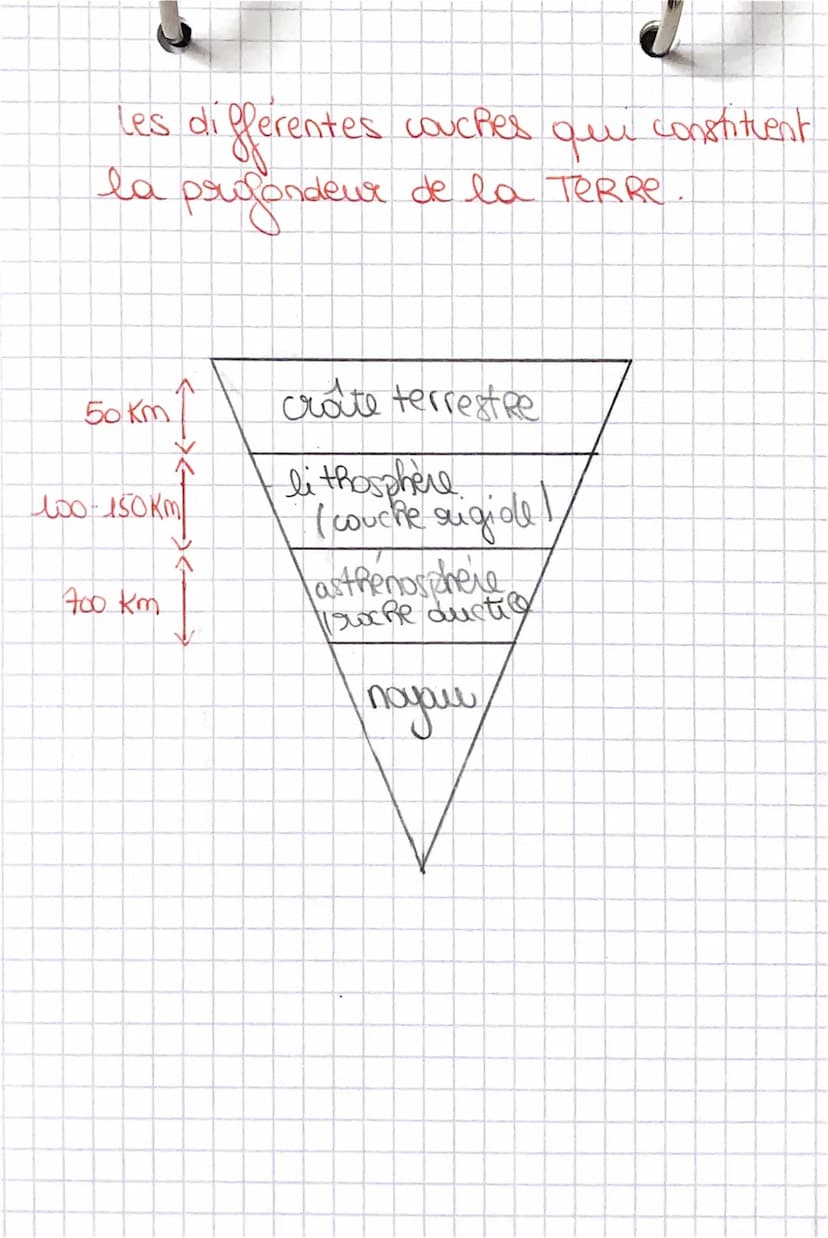 les différentes couches qui constituent
la profondeur de la TERRE.
50 Km
croûte terrestre
100-150 Km
lithosphère
(couche rigide)
700 Km
asthénosphère
(roche ductile
noyau